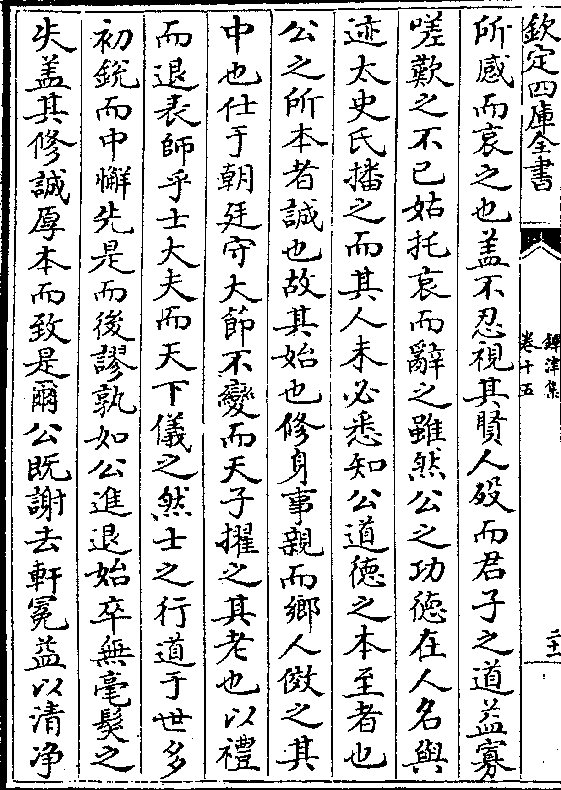 欽定四庫全書
鐔津集
卷十五
二十一
所感而哀之也盖不忍視其賢人殁而君子之道益寡
嗟歎之不已姑托哀而辭之雖然公之功德在人名與
迹太史氏播之而其人未必悉知公道德之本至者也
公之所本者誠也故其始也修身事親而鄉人傚之其
中也仕于朝廷守大節不變而天子擢之其老也以禮
而退表師乎士大夫而天下儀之然士之行道于世多
初銳而中懈先是而後謬孰如公進退始卒無毫髮之
失盖其修誠厚本而致是爾公既謝去軒冕益以清净